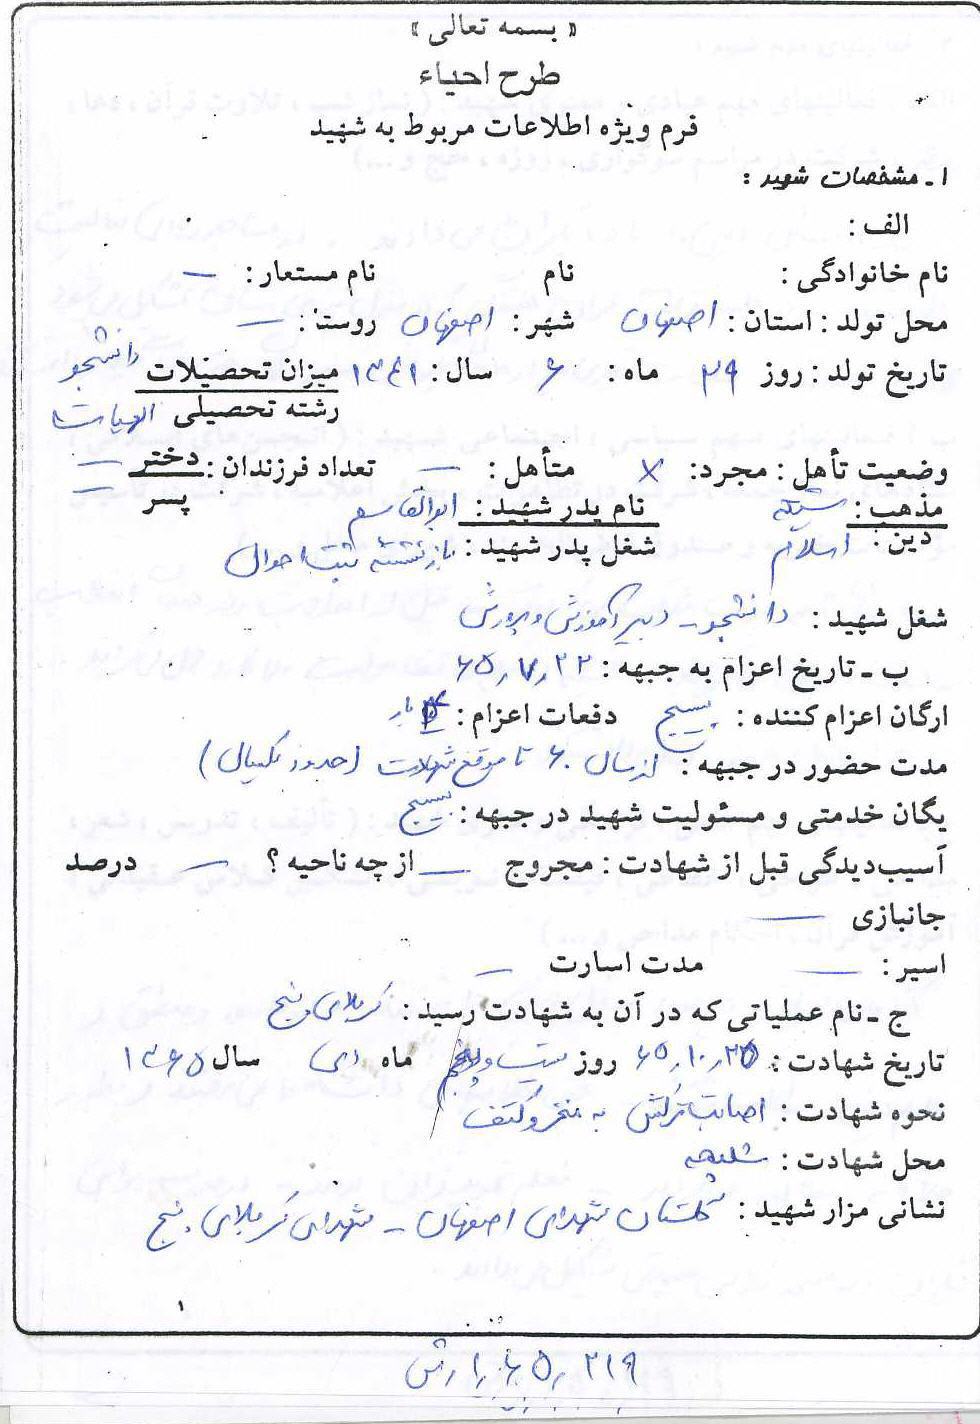 « بسمه تعالی »
طرح احیاء
فرم ویژه اطلاعات مربوط به شهید
۱ـ مشخصات شهید :
الف :
نام خانوادگی : نام نام مستعار : —
محل تولد : استان : اصفهان شهر : اصفهان روستا : —
تاریخ تولد : روز ۲۹ ماه : ۶ سال : ۱۳۴۱ میزان تحصیلات دانشجو
رشته تحصیلی الهیات
وضعیت تأهل : مجرد : × متأهل : — تعداد فرزندان : دختر —
پسر —
مذهب : شیعه نام پدر شهید : ابوالقاسم
دین : اسلام شغل پدر شهید : بازنشسته ثبت احوال
شغل شهید : دانشجو - دبیر آموزش و پرورش
ب ـ تاریخ اعزام به جبهه : ۶۵٫۷٫۲۲
ارگان اعزام کننده : بسیج دفعات اعزام : بار
مدت حضور در جبهه : از سال ۶۰ تا موقع شهادت (حدود یکسال)
یگان خدمتی و مسئولیت شهید در جبهه : بسیج
آسیب‌دیدگی قبل از شهادت : مجروح — از چه ناحیه ؟ — درصد
جانبازی —
اسیر : — مدت اسارت —
ج ـ نام عملیاتی که در آن به شهادت رسید : کربلای پنج
تاریخ شهادت : ۶۵٫۱۰٫۲۵ روز بیست و پنجم ماه دی سال ۱۳۶۵
نحوه شهادت : اصابت ترکش به و کتف
محل شهادت : شلمچه
نشانی مزار شهید : گلستان شهدای اصفهان - شهدای کربلای پنج
۱